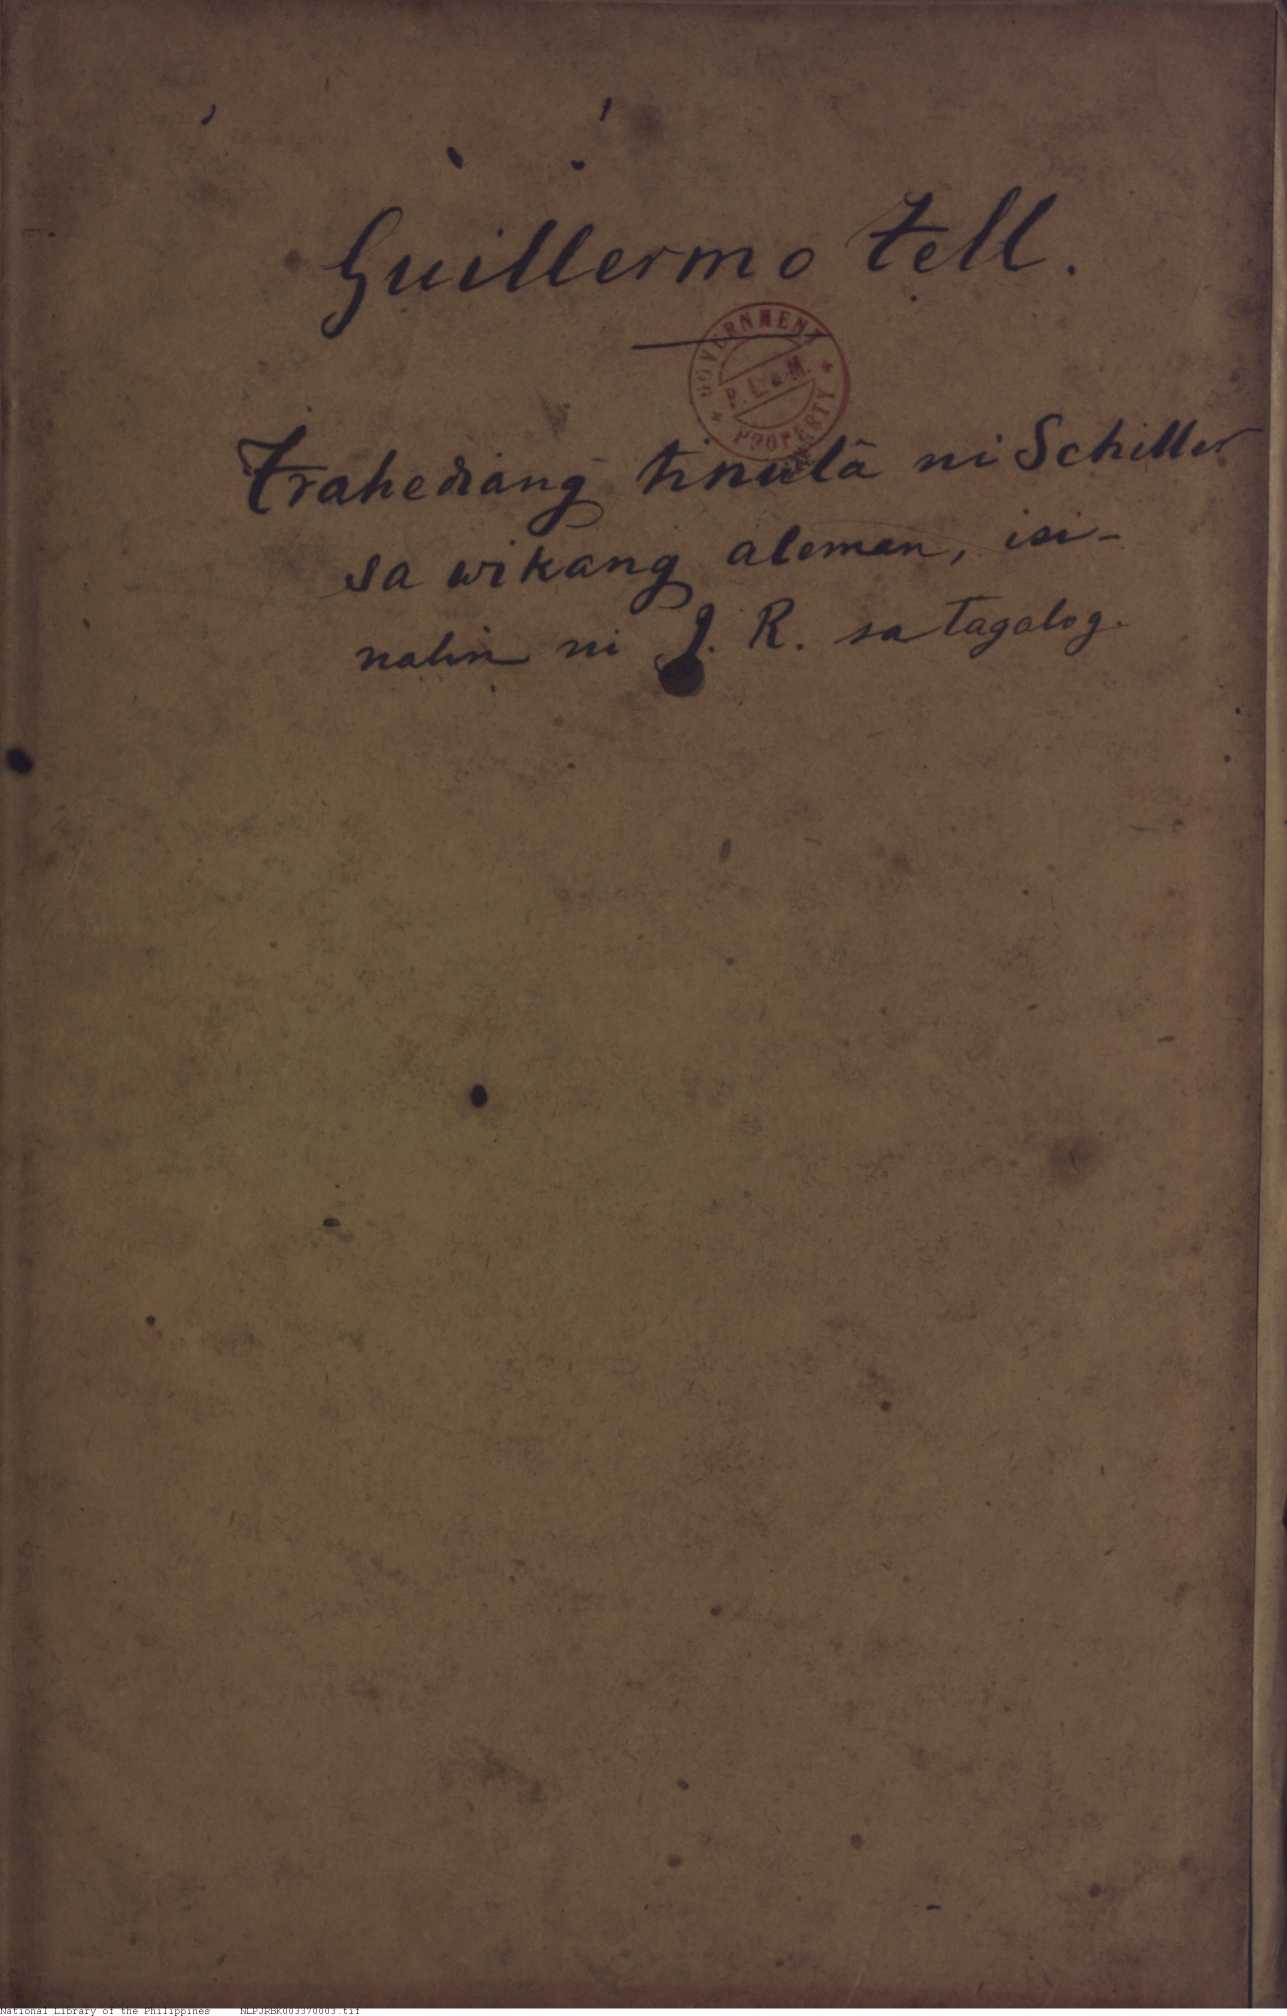 Guillermo Tell.
GOVERNMENT PROPERTY
P. L. & M.
Trahediang tinulâ ni Schiller
sa wikang aleman, isi-
nalin ni J. R. sa Tagalog.
National Library of the Philippines NLPJRBK003370003.tif